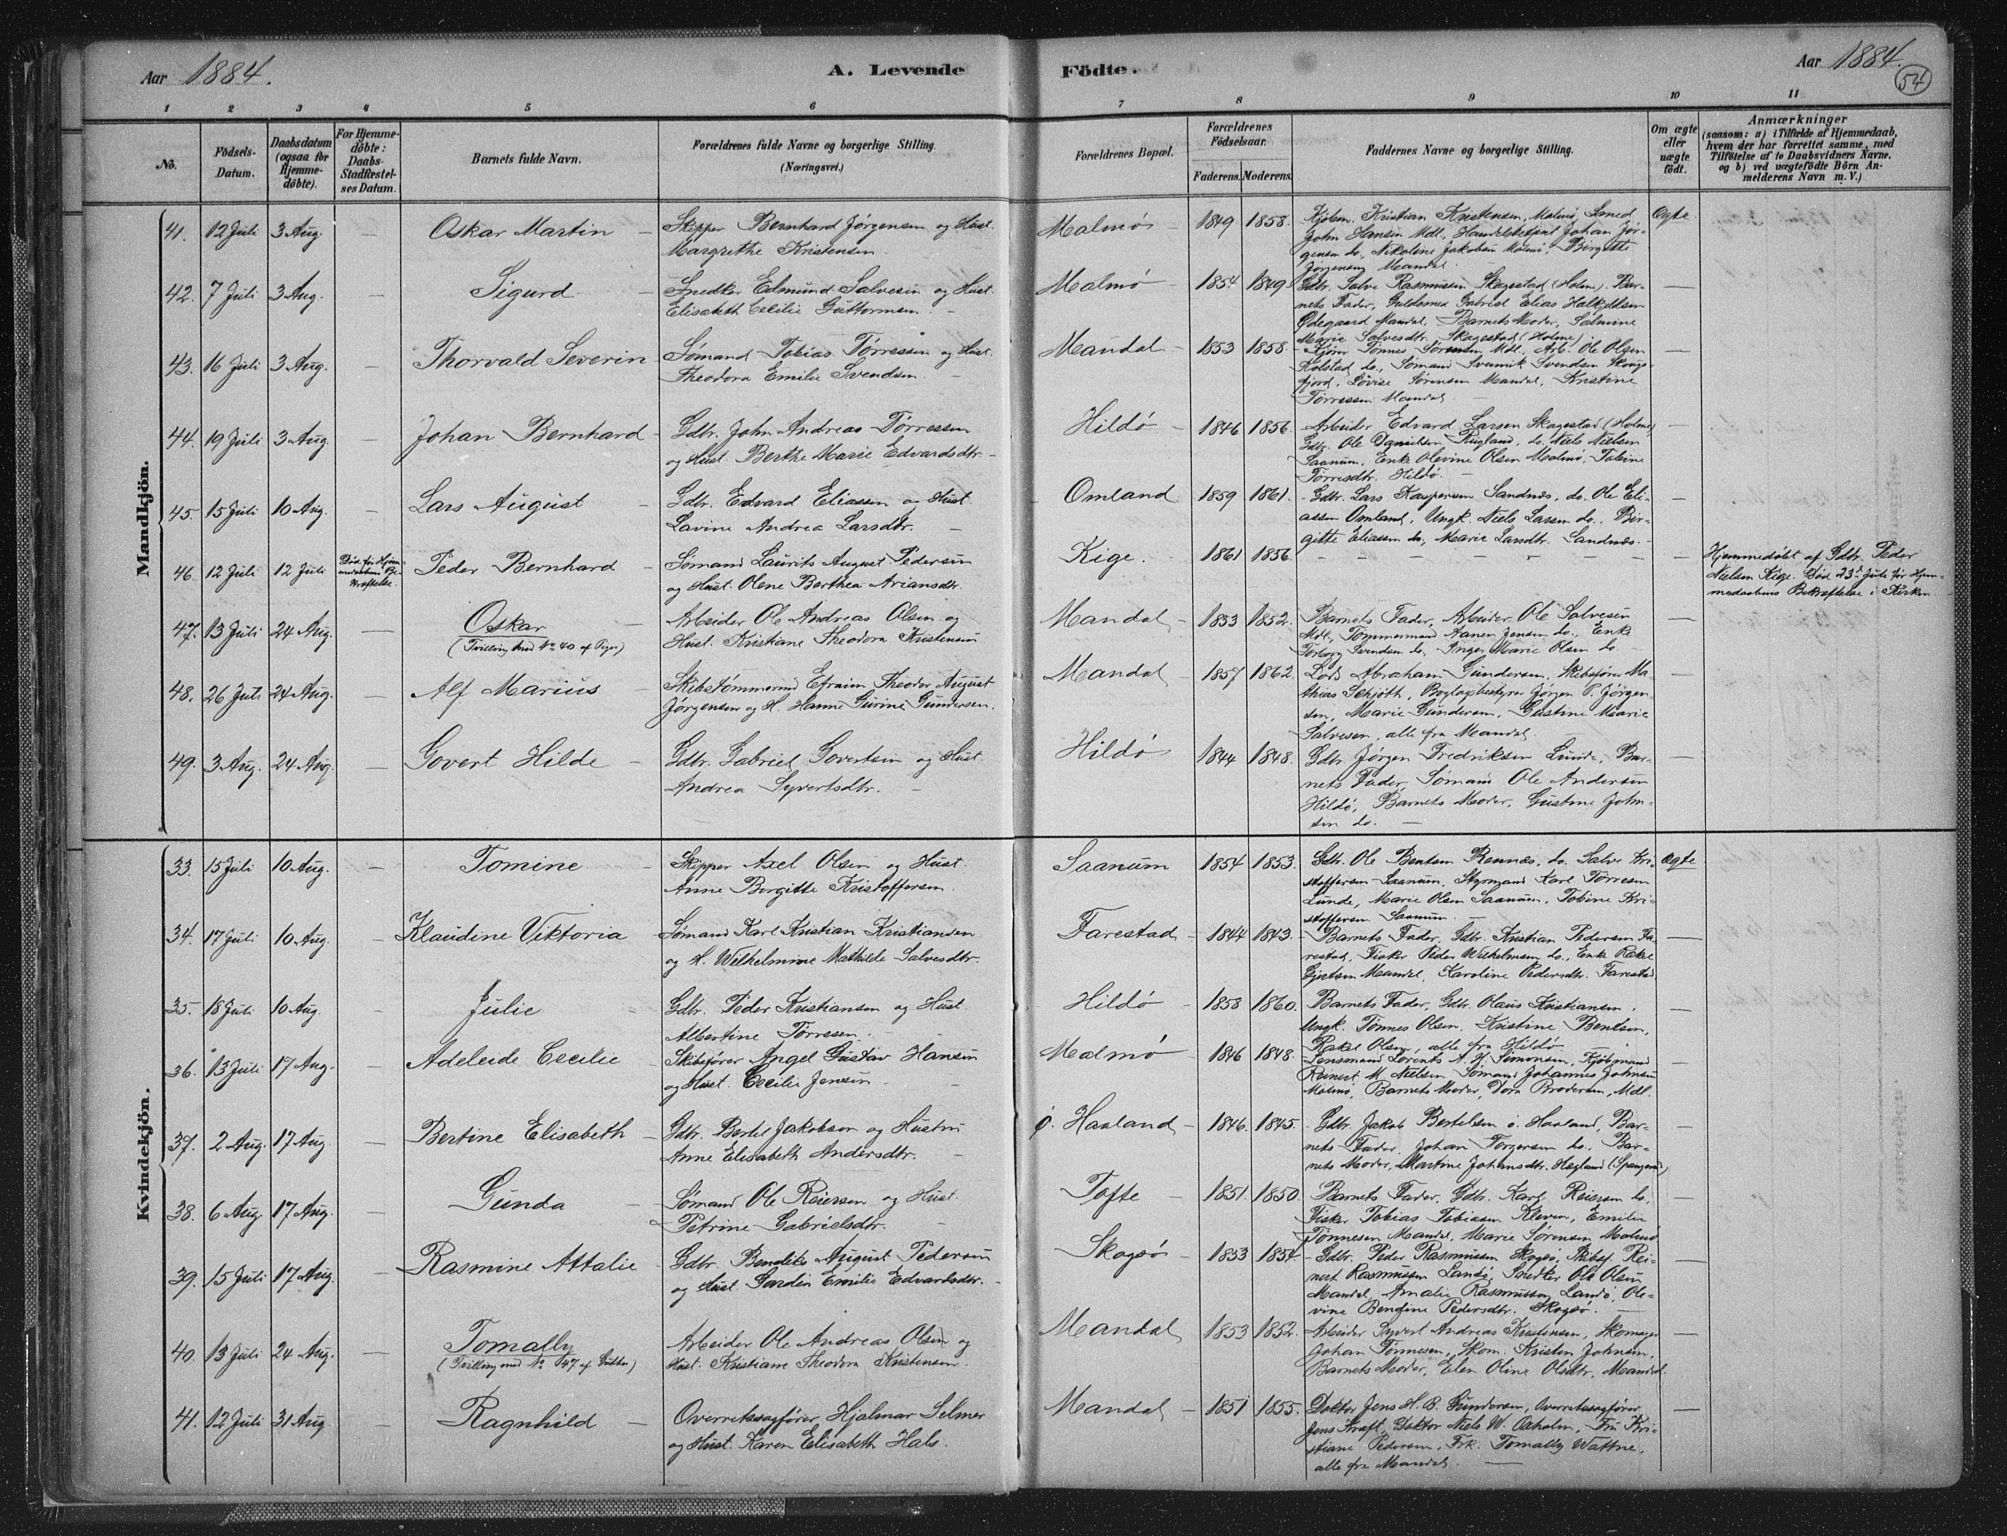 Aar 1884. A. Levende Födte. Aar 1884.
54
1 2 3 4 5 6 7 8 9 10 11
No.
Födsels-Datum.
Daabsdatum (ogsaa for Hjemmedøbte).
For Hjemmedøbte: Daabs-Stadfæstelses Datum.
Barnets fulde Navn.
Forældrenes fulde Navne og borgerlige Stilling.
(Næringsvei.)
Forældrenes Bopæl.
Forældrenes Födselsaar.
Faderens. Moderens.
Faddernes Navne og borgerlige Stilling.
Om ægte eller uægte født.
Anmærkninger
(saasom: a) i Tilfælde af Hjemmedaab,
hvem der har forrettet samme, med
Tilföielse af to Daabsvidners Navne,
og b) ved uægtefödte Börn An-
melderens Navn m. V.)
Mandkjön.
41. 12 Juli 3 Aug. — Oskar Martin — Skipper Bernhard Jørgensen og Hust.
Margrethe Kristensen
Malmø — 1849 1858. Kjøbm. Kristian Kristensen, Malmø, Smed
John Hansen Mdl., Johan Jør-
gensen do, Nikoline Jakobsen Malmø, Birgitte
Jørgensen Mandal
Ægte
42. 7 Juli 3 Aug. — Sigurd — Snedker Edmund Salvesen og Hust.
Elisabeth Cecilie Guttormsen —
Malmø — 1854 1849 Gdbr. Salve Rasmussen Skagestad (Holme), Bar-
nets Fader, Guldsmed Gabriel Elias
Ødegaard Mandal, Barnets Moder, Salmine
Marie Salvesdtr. Skagestad (Holme) —
43. 16 Juli 3 Aug. — Thorvald Severin Sømand Tobias Tørressen og Hust.
Theodora Emilie Svendsen —
Mandal — 1853 1858 Tønnes Sørensen Mdl. Arb. Ole Olsen
Holstad do., Sømand Svennik Svendsen
fjord, Lovise Sørensen Mandal, Kristine
Tørressen Mandal —
44. 19 Juli 3 Aug. — Johan Bernhard Gdbr. John Andreas Tørressen
og Hust. Berthe Marie Edvardsdtr. —
Hildø — 1846 1856. Arbeider Edvard Larsen Skagestad (Holme)
Gdbr. Ole Danielsen Rugland, do. Niels Nielsen
Saanum, Enke Olevine Olsen Malmø, Tobine
Tørresdtr. Hildø —
45. 15 Juli 10 Aug. — Lars August — Gdbr. Edvard Eliassen og Hust.
Lavine Andrea Larsdtr. —
Omland — 1859 1861. Gdbr. Lars Kaspersen Sandnæs, do. Ole Eli-
assen Omland, Ungk. Niels Larsen do., Bir-
gitte Eliassen do, Marie Larsdtr. Sandnæs. —
46. 12 Juli 12 Juli Død før Hjem-
medaabens Be-
kræftelse
Peder Bernhard — Sømand Laurits August Pedersen
og Hust. Olene Berthea Ariansdtr.
Kige. — 1861 1856. — — — — — —
Hjemmedøbt af Gdbr. Peder
Nielsen Kige. Død 23de Juli før Hjem-
medaabens Bekræftelse i Kirken
47. 13 Juli 24 Aug. — Oskar
(Tvilling med No 40 af Piger)
Arbeider Ole Andreas Olsen og
Hust. Kristiane Theodora Kristensen
Mandal — 1853 1852. Barnets Fader, Arbeider Ole Salvesen
Mdl, Tømmermand Jensen do., Enke
Torborg Svendsen do, Inger Marie Olsen do —
48. 26 Juli 24 Aug. — Alf Marius — Skibstømmermd Efraim Theodor August
Jørgensen og H. Hanne Gurine Gundersen.
Mandal — 1857 1862. Lods Abraham Gundersen, Skibsfører Ma-
thias Schjøth, Jørgen P. Jørgen-
sen, Marie Gundersen, Gustine Marie
Salvesen, alle fra Mandal
49. 3 Aug. 24 Aug. — Govert Hilde — Gdbr. Gabriel Govertsen og Hust.
Andrea Syvertsdtr. —
Hildø — 1844 1848. Gdbr. Jørgen Fredriksen Lunde, Bar-
nets Fader, Sømand Ole Andersen
Hildø, Barnets Moder, Gustine John-
sen do. —
Kvindekjön.
33. 15 Juli 10 Aug. — Tomine — Skipper Axel Olsen og Hust.
Anne Borgitte Kristoffersen.
Saanum — 1854 1853. Gdbr. Ole Bentsen Rennæs, do. Salve Kri-
stoffersen Saanum, Styrmand Karl Tørresen
Lunde, Marie Olsen Saanum, Tobine Kri-
stoffersen Saanum. —
Ægte
34. 17 Juli 10 Aug. — Klaudine Viktoria Sømand Karl Kristian Kristiansen
og H. Wilhelmine Mathilde Salvesdtr.
Farestad — 1844 1843. Barnets Fader, Gdbr. Kristian Pedersen Fa-
restad, Fisker Peder Wilhelmsen do., Enke Rakel
Gjertsen Mandal, Karoline Pedersdtr. Farestad
35. 18 Juli 10 Aug. — Julie Gdbr. Peder Kristiansen og Hust.
Albertine Tørresen. —
Hildø — 1858 1860. Barnets Fader, Gdbr. Olaus Kristiansen,
Ungk. Tønnes Olsen, Kristine Bentsen,
Rakel Olsen, alle fra Hildø —
36. 13 Juli 17 Aug. — Adeleide Cecilie Skibsfører Angel Gustav Hansen
og Hust. Cecilie Jensen —
Malmø — 1846 1848. Lensmand Lorents A. H. Simonsen, Kjøbmand
Reinert M. Nielsen, Sømand Johannes Johnsen
Malmø, Barnets Moder, Dora Brodersen, Mdl.
37. 2 Aug. 17 Aug. — Bertine Elisabeth — Gdbr. Bertel Jakobsen og Hustru
Anne Elisabeth Andersdtr. —
ø. Haaland — 1846. 1845. Gdbr. Jakob Bertelsen ø. Haaland, Bar-
nets Fader, Johan Torgersen do. Bar-
nets Moder, Martine Johansdtr. Hægland (Spangereid)
38. 6 Aug 17 Aug. — Gunda — Sømand Ole Reiersen og Hust.
Petrine Gabrielsdtr. —
Tofte — 1851. 1850. Barnets Fader, Gdbr. Karl Reiersen do.,
Fisker Tobias Tobiassen Kleven, Emilie
Tønnesen Mandal, Marie Sørensen Malmø
39. 15 Juli 17 Aug. — Rasmine Attalie Gdbr. Bendiks August Pedersen
og Hust. Sardin Emilie Edvardsdtr. —
Skogsø — 1853 1854. Gdbr. Peder Rasmussen Skogsø, Rei-
nert Rasmussen Landø, Snedker Ole Olsen
Mandal, Amalie Rasmussen Landø, Ole-
vine Bendine Pedersdtr. Skogsø. —
40. 13 Juli 24 Aug. — Tomally
(Tvilling med No 47 af Gutter)
Arbeider Ole Andreas Olsen og
Hust. Kristiane Theodora Kristensen.
Mandal 1853 1852. Arbeider Syvert Andreas Kristensen, Skomager
Johan Tønnesen, Skom. Kristen Johnsen,
Barnets Moder, Elen Oline Olsdtr, Mandal
41. 12 Juli 31 Aug — Ragnhild — Overretssagfører Hjalmar Selmer
og Hust. Karen Elisabeth Hals.
Mandal — 1851 1855. Doktor Jens H. B. Gundersen, Overretssagfører
Jens Kraft, Doktor Niels W. Oxholm, Fru Kri-
stiane Pedersen, Frk. Tomally Wattne,
alle fra Mandal. —